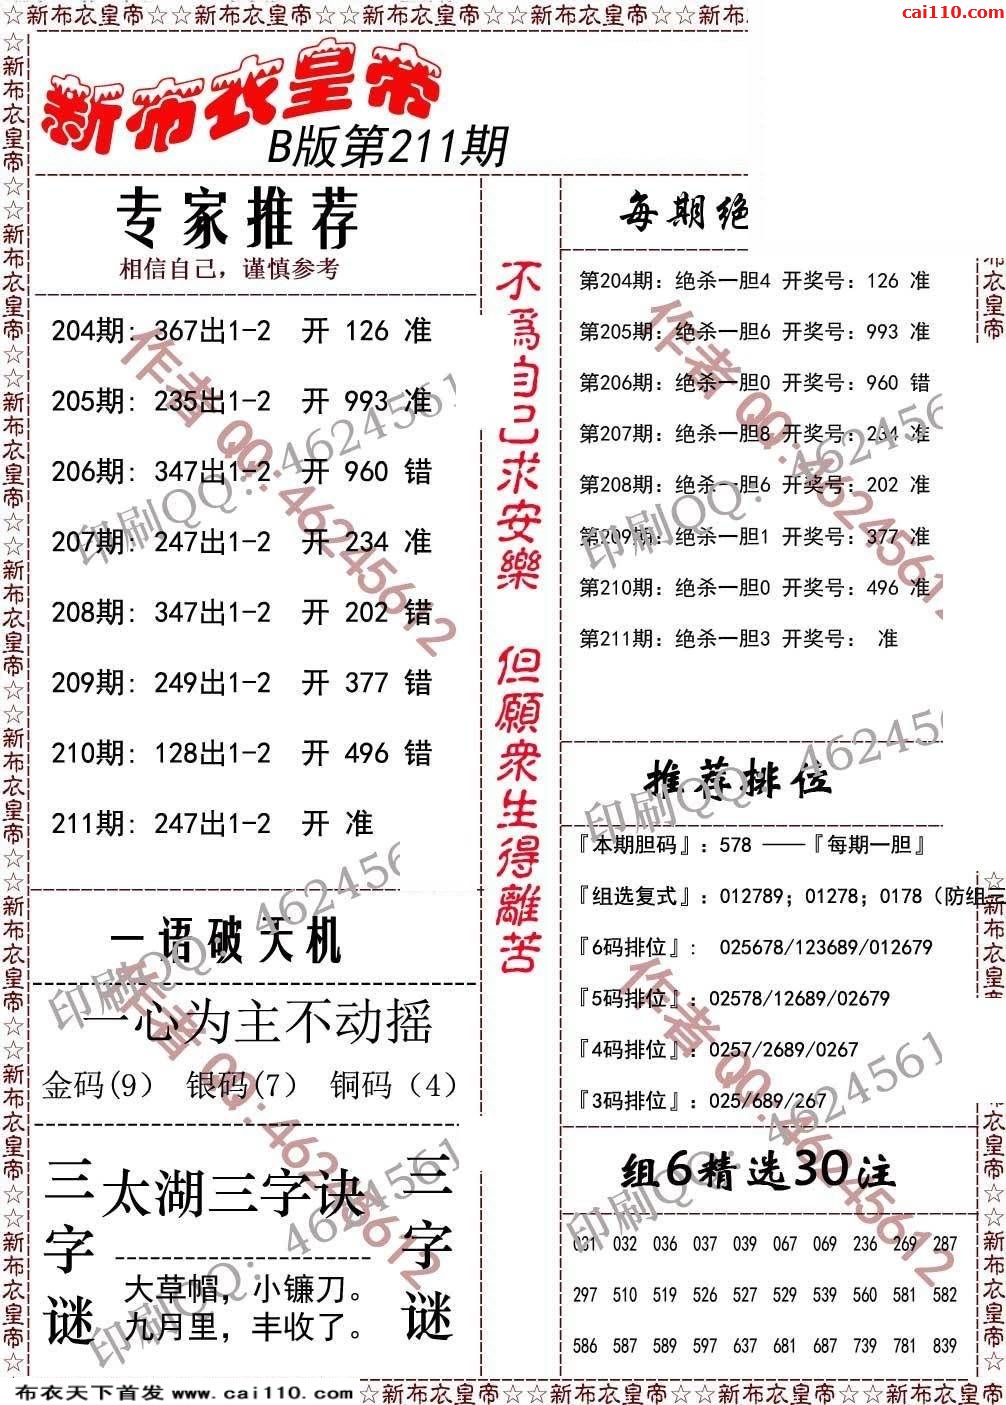 ☆新布衣皇帝☆☆新布衣皇帝☆☆新布衣皇帝☆☆新布衣皇帝☆☆新布
cai110.com
新布衣皇帝
B版第211期
专家推荐
相信自己，谨慎参考
204期: 367出1-2 开 126 准
205期: 235出1-2 开 993 准
206期: 347出1-2 开 960 错
207期: 247出1-2 开 234 准
208期: 347出1-2 开 202 错
209期: 249出1-2 开 377 错
210期: 128出1-2 开 496 错
211期: 247出1-2 开 准
一语破天机
一心为主不动摇
金码(9） 银码(7） 铜码（4）
三字谜
太湖三字诀
大草帽，小镰刀。
九月里，丰收了。
三字谜
不為自己求安樂 但願衆生得離苦
每期绝
第204期：绝杀一胆4 开奖号：126 准
第205期：绝杀一胆6 开奖号：993 准
第206期：绝杀一胆0 开奖号：960 错
第207期：绝杀一胆8 开奖号：234 准
第208期：绝杀一胆6 开奖号：202 准
第209期：绝杀一胆1 开奖号：377 准
第210期：绝杀一胆0 开奖号：496 准
第211期：绝杀一胆3 开奖号： 准
推荐排位
『本期胆码』：578 ——『每期一胆』
『组选复式』：012789；01278；0178（防组三
『6码排位』： 025678/123689/012679
『5码排位』：02578/12689/02679
『4码排位』：0257/2689/0267
『3码排位』：025/689/267
组6精选30注
031 032 036 037 039 067 069 236 269 287
297 510 519 526 527 529 539 560 581 582
586 587 589 597 637 681 687 739 781 839
作者QQ:46245612
印刷QQ：4624561
布衣天下首发 www.cai110.com
☆新布衣皇帝☆☆新布衣皇帝☆☆新布衣皇帝☆☆新布衣皇帝☆